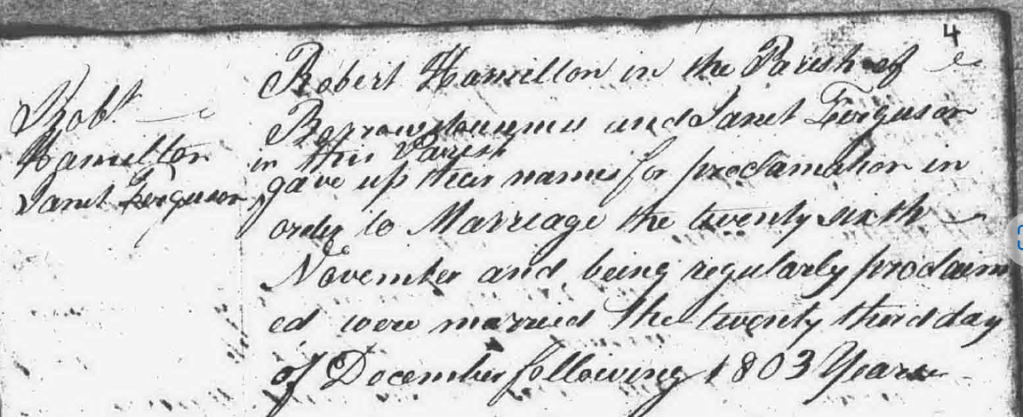 4
Robt
Hamilton
Janet Ferguson
Robert Hamilton in the Parish of
Borrowstouness and Janet Ferguson
in this Parish
gave up their names for proclamation in
order to Marriage the twenty sixth
November and being regularly proclaim
ed were married the twenty third day
of December following 1803 Years